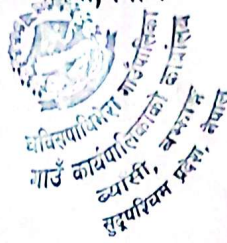 छबिसपाथिभेरा गाउँपालिका
गाउँ कार्यपालिकाको कार्यालय
ब्यासी, बझाङ
सुदूरपश्चिम प्रदेश, नेपाल